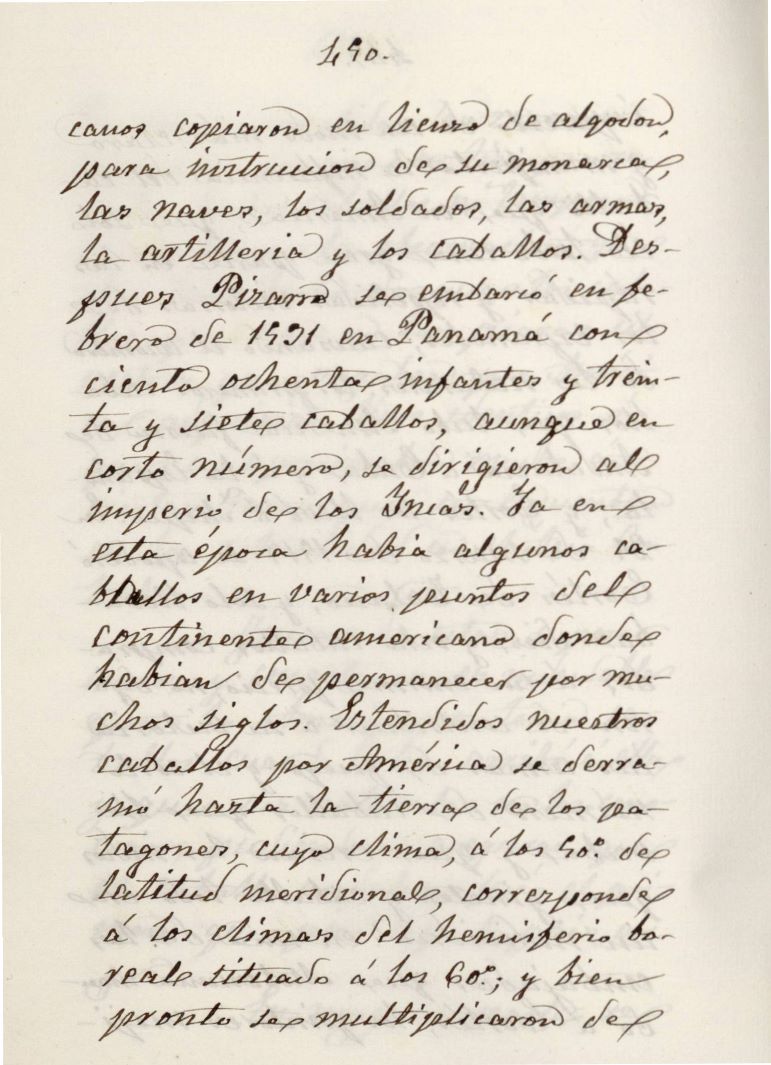 150.
canos copiaron en lienzo de algodon,
para instruccion de su monarca,
las naves, los soldados, las armas,
la artilleria y los caballos. Des-
pues Pizarro se embarcó en fe-
brero de 1531 en Panamá con
ciento ochenta infantes y trein-
ta y siete caballos, aunque en
corto número, se dirigieron al
imperio de los Incas. Ya en
esta época habia algunos ca-
ballos en varios puntos del
continente americano donde
habian de permanecer por mu-
chos siglos. Estendidos nuestros
caballos por América se derra-
mó hasta la tierra de los pa-
tagones, cuyo clima, á los 50.º de
latitud meridional, corresponde
á los climas del hemisferio bo-
real situado á los 60.º; y bien
pronto se multiplicaron de